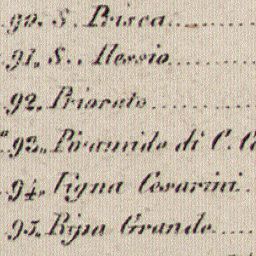 90. S. Prisca
91. S. Alessio
92. Priorato
93. Piramide di C. C
94. Vigna Cesarini
95. Ripa Grande